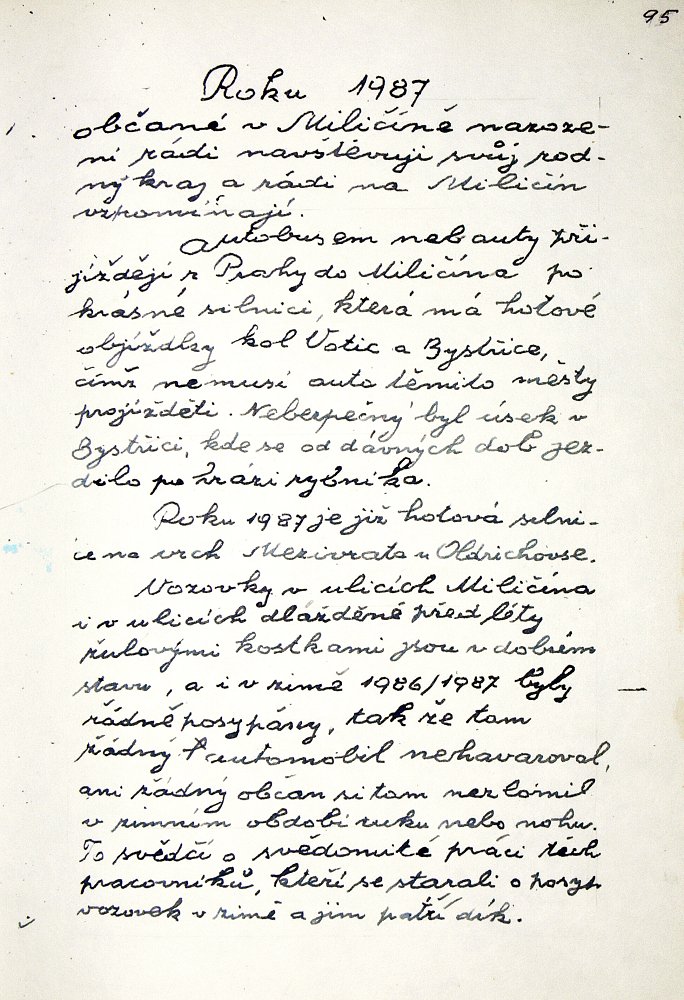 95
Roku 1987
občané v Miličíně naroze-
ní rádi navštěvují svůj rod-
ný kraj a rádi na Miličín
vzpomínají.
Autobusem neb auty při-
jíždějí z Prahy do Miličína po
krásné silnici, která má hotové
objížďky kol Votic a Bystřice,
čímž nemusí auta těmito městy
projížděti. Nebezpečný byl úsek v
Bystřici, kde se od dávných dob jez-
dilo po hrázi rybníka.
Roku 1987 je již hotová silni-
ce na vrch Mezivrata u Oldřichovse.
Vozovky v ulicích Miličína
i v ulicích dlážděné před léty
žulovými kostkami jsou v dobrém
stavu, a i v zimě 1986/1987 byly
řádně posypány, tak že tam
žádný automobil nehavaroval,
ani žádný občan si tam nezlomil
v zimním období ruku nebo nohu.
To svědčí o svědomité práci těch
pracovníků, kteří se starali o posyp
vozovek v zimě a jim patří dík.